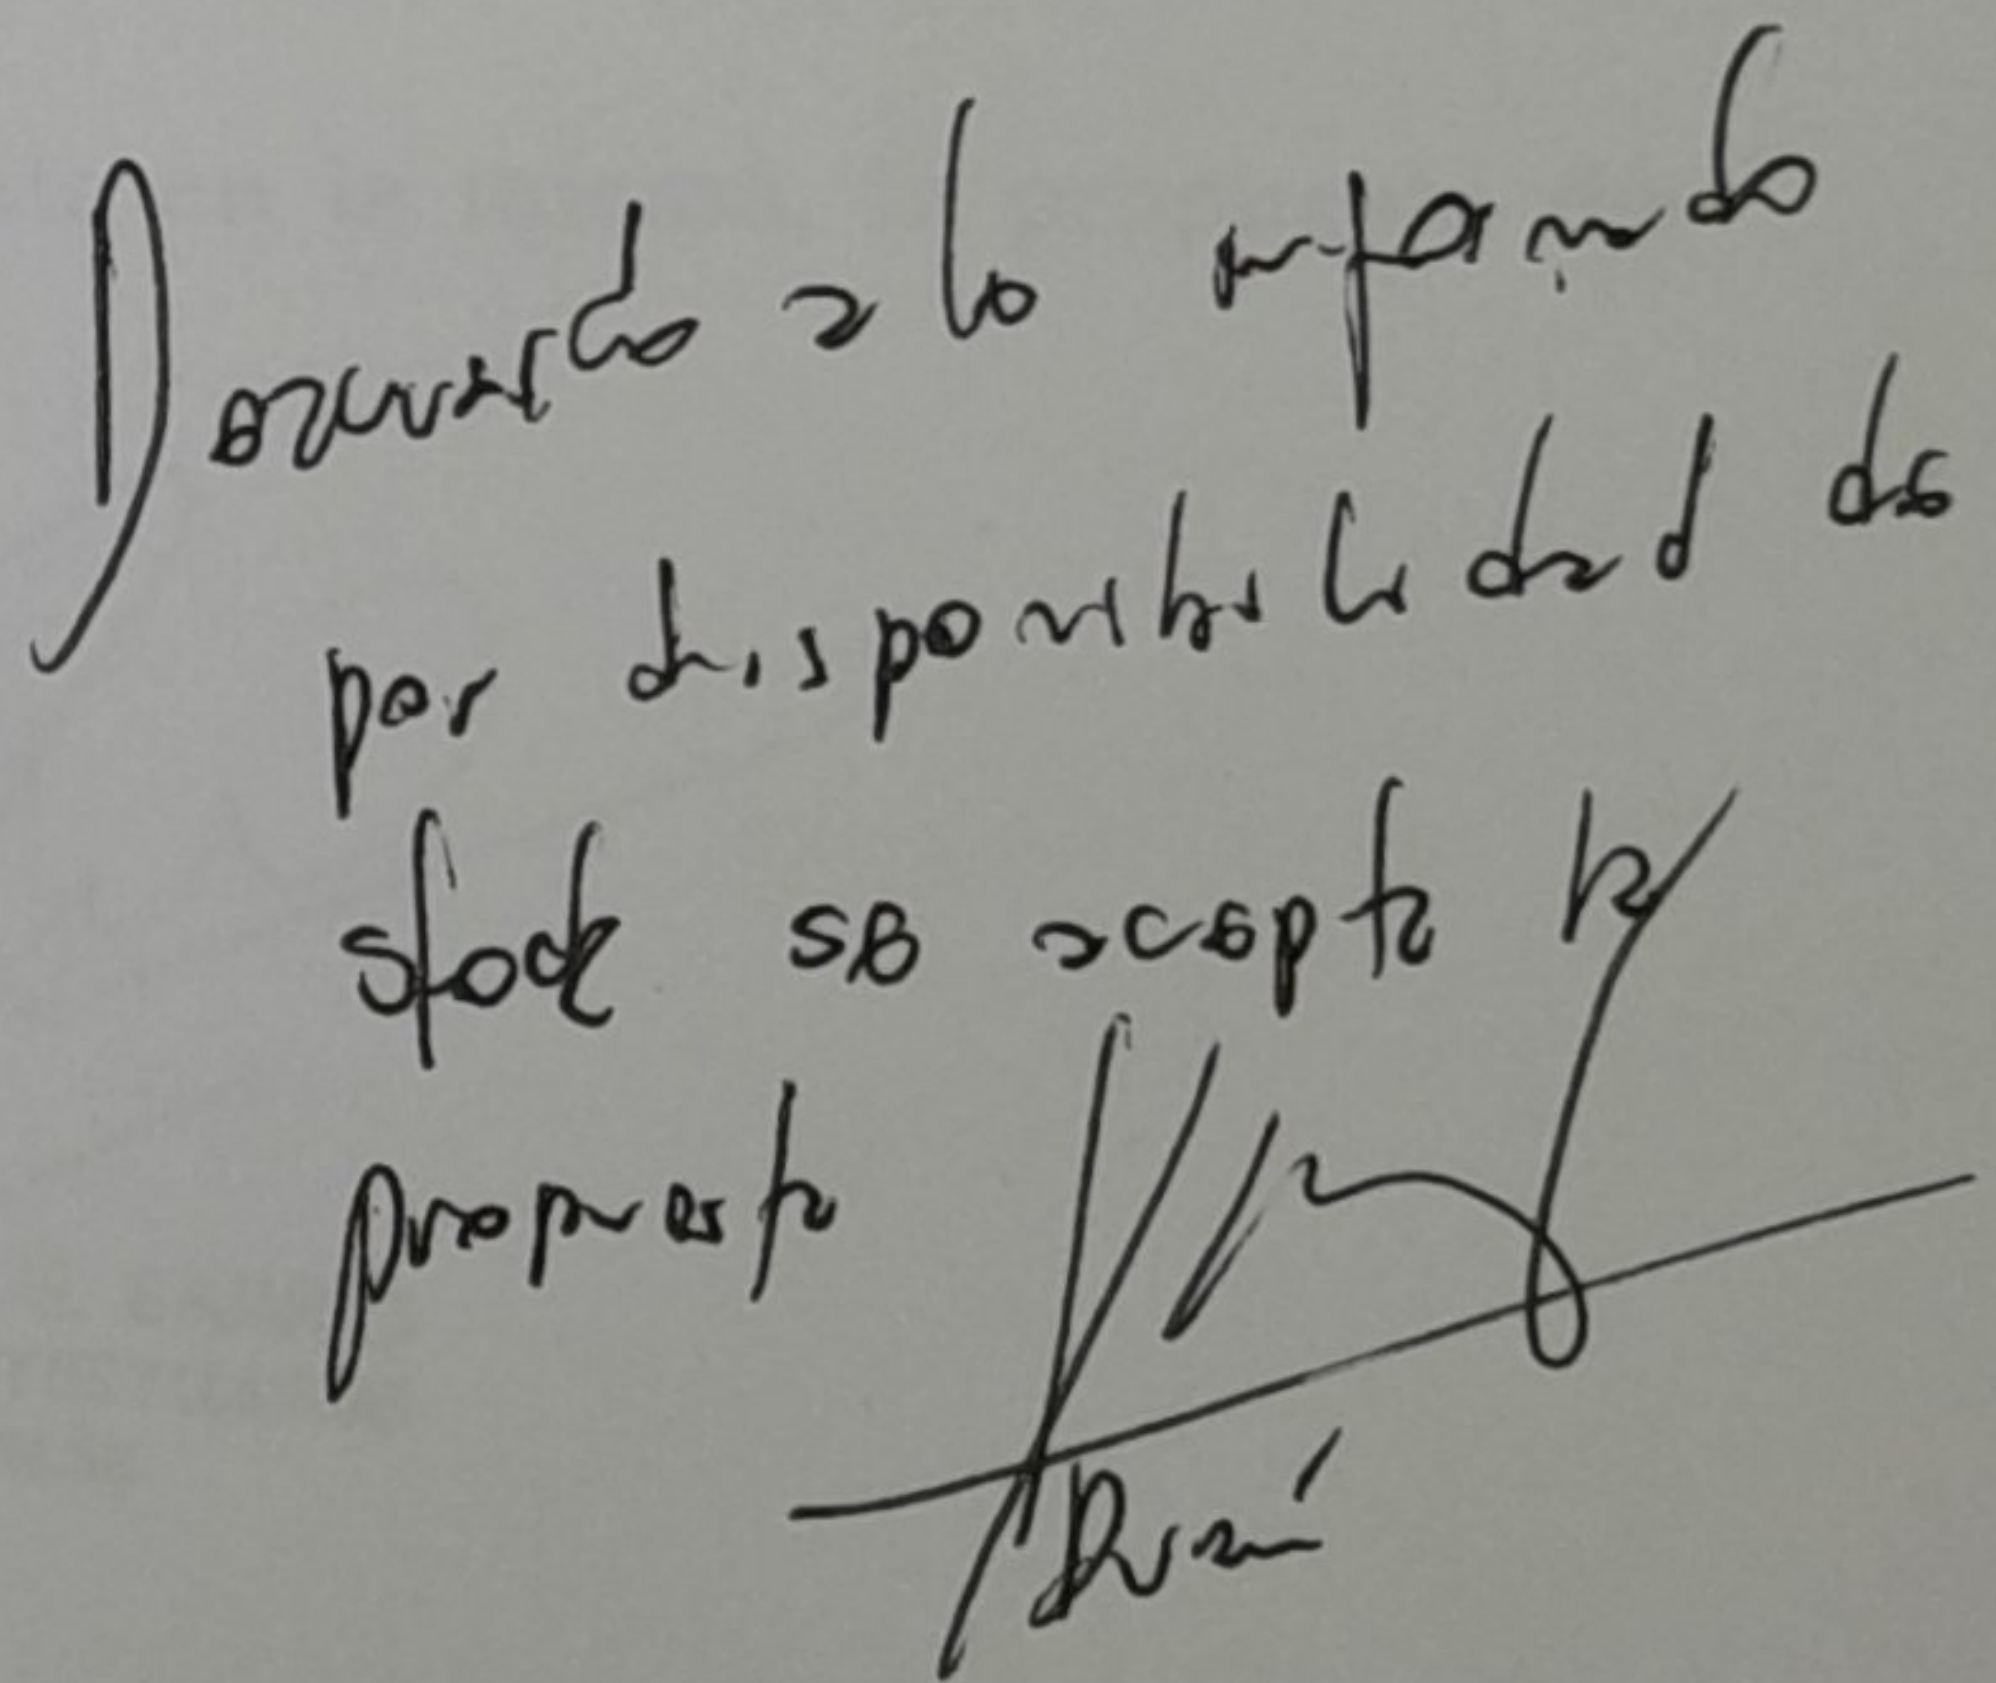 De acuerdo a lo informado
por disponibilidad de
stock se acepta la
propuesta